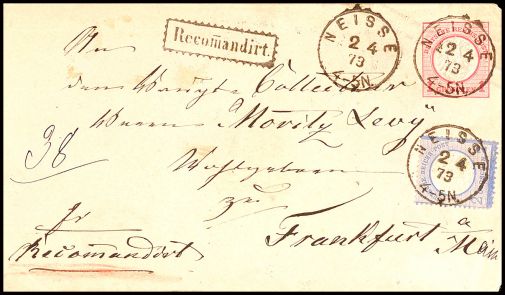 Recom̄andirt.
NEISSE
2 4
73
4-5N.
NEISSE
2 4
73
4-5N.
NEISSE
2 4
73
4-5N.
An
den
Herrn "Moritz Levy"
Wohlgeboren
zu
38
Recomandirt
Frankfurt a Main